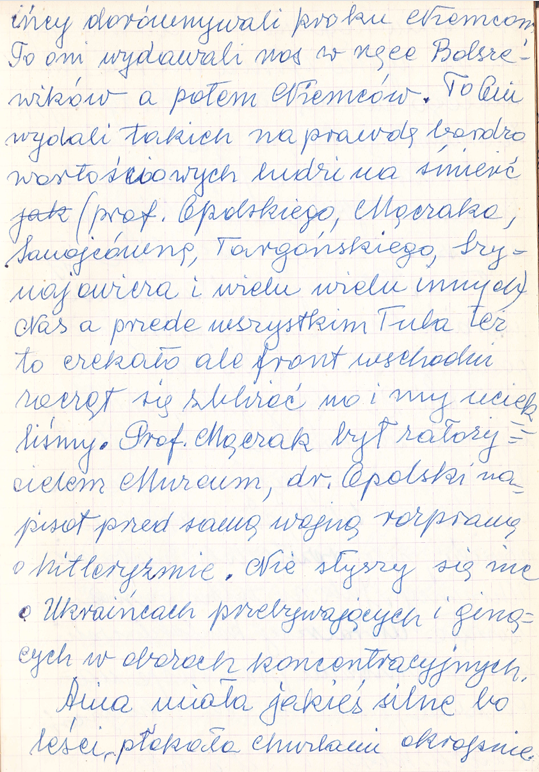 ińcy dorównywali kroku Niemcom
To oni wydawali nas w ręce Bolsze-
wików a potem Niemców. To Oni
wydali takich naprawdę bardzo
wartościowych ludzi na śmierć
jak (prof. Opolskiego, Mączaka,
Sanojcównę, Targońskiego, Szy=
najowicza i wielu wielu innych)
Nas a przede wszystkim Tuta też
to czekało ale front wschodni
zaczął się zbliżać no i my uciek
liśmy. Prof. Mączak był założy=
cielem Muzeum, dr. Opolski na=
pisał przed samą wojną rozprawę
o hitleryzmie. Nie słyszy się nic
o Ukraińcach przebywających i giną=
cych w obozach koncentracyjnych.
Ania miała jakieś silne bo
leści, płakała chwilami okropnie